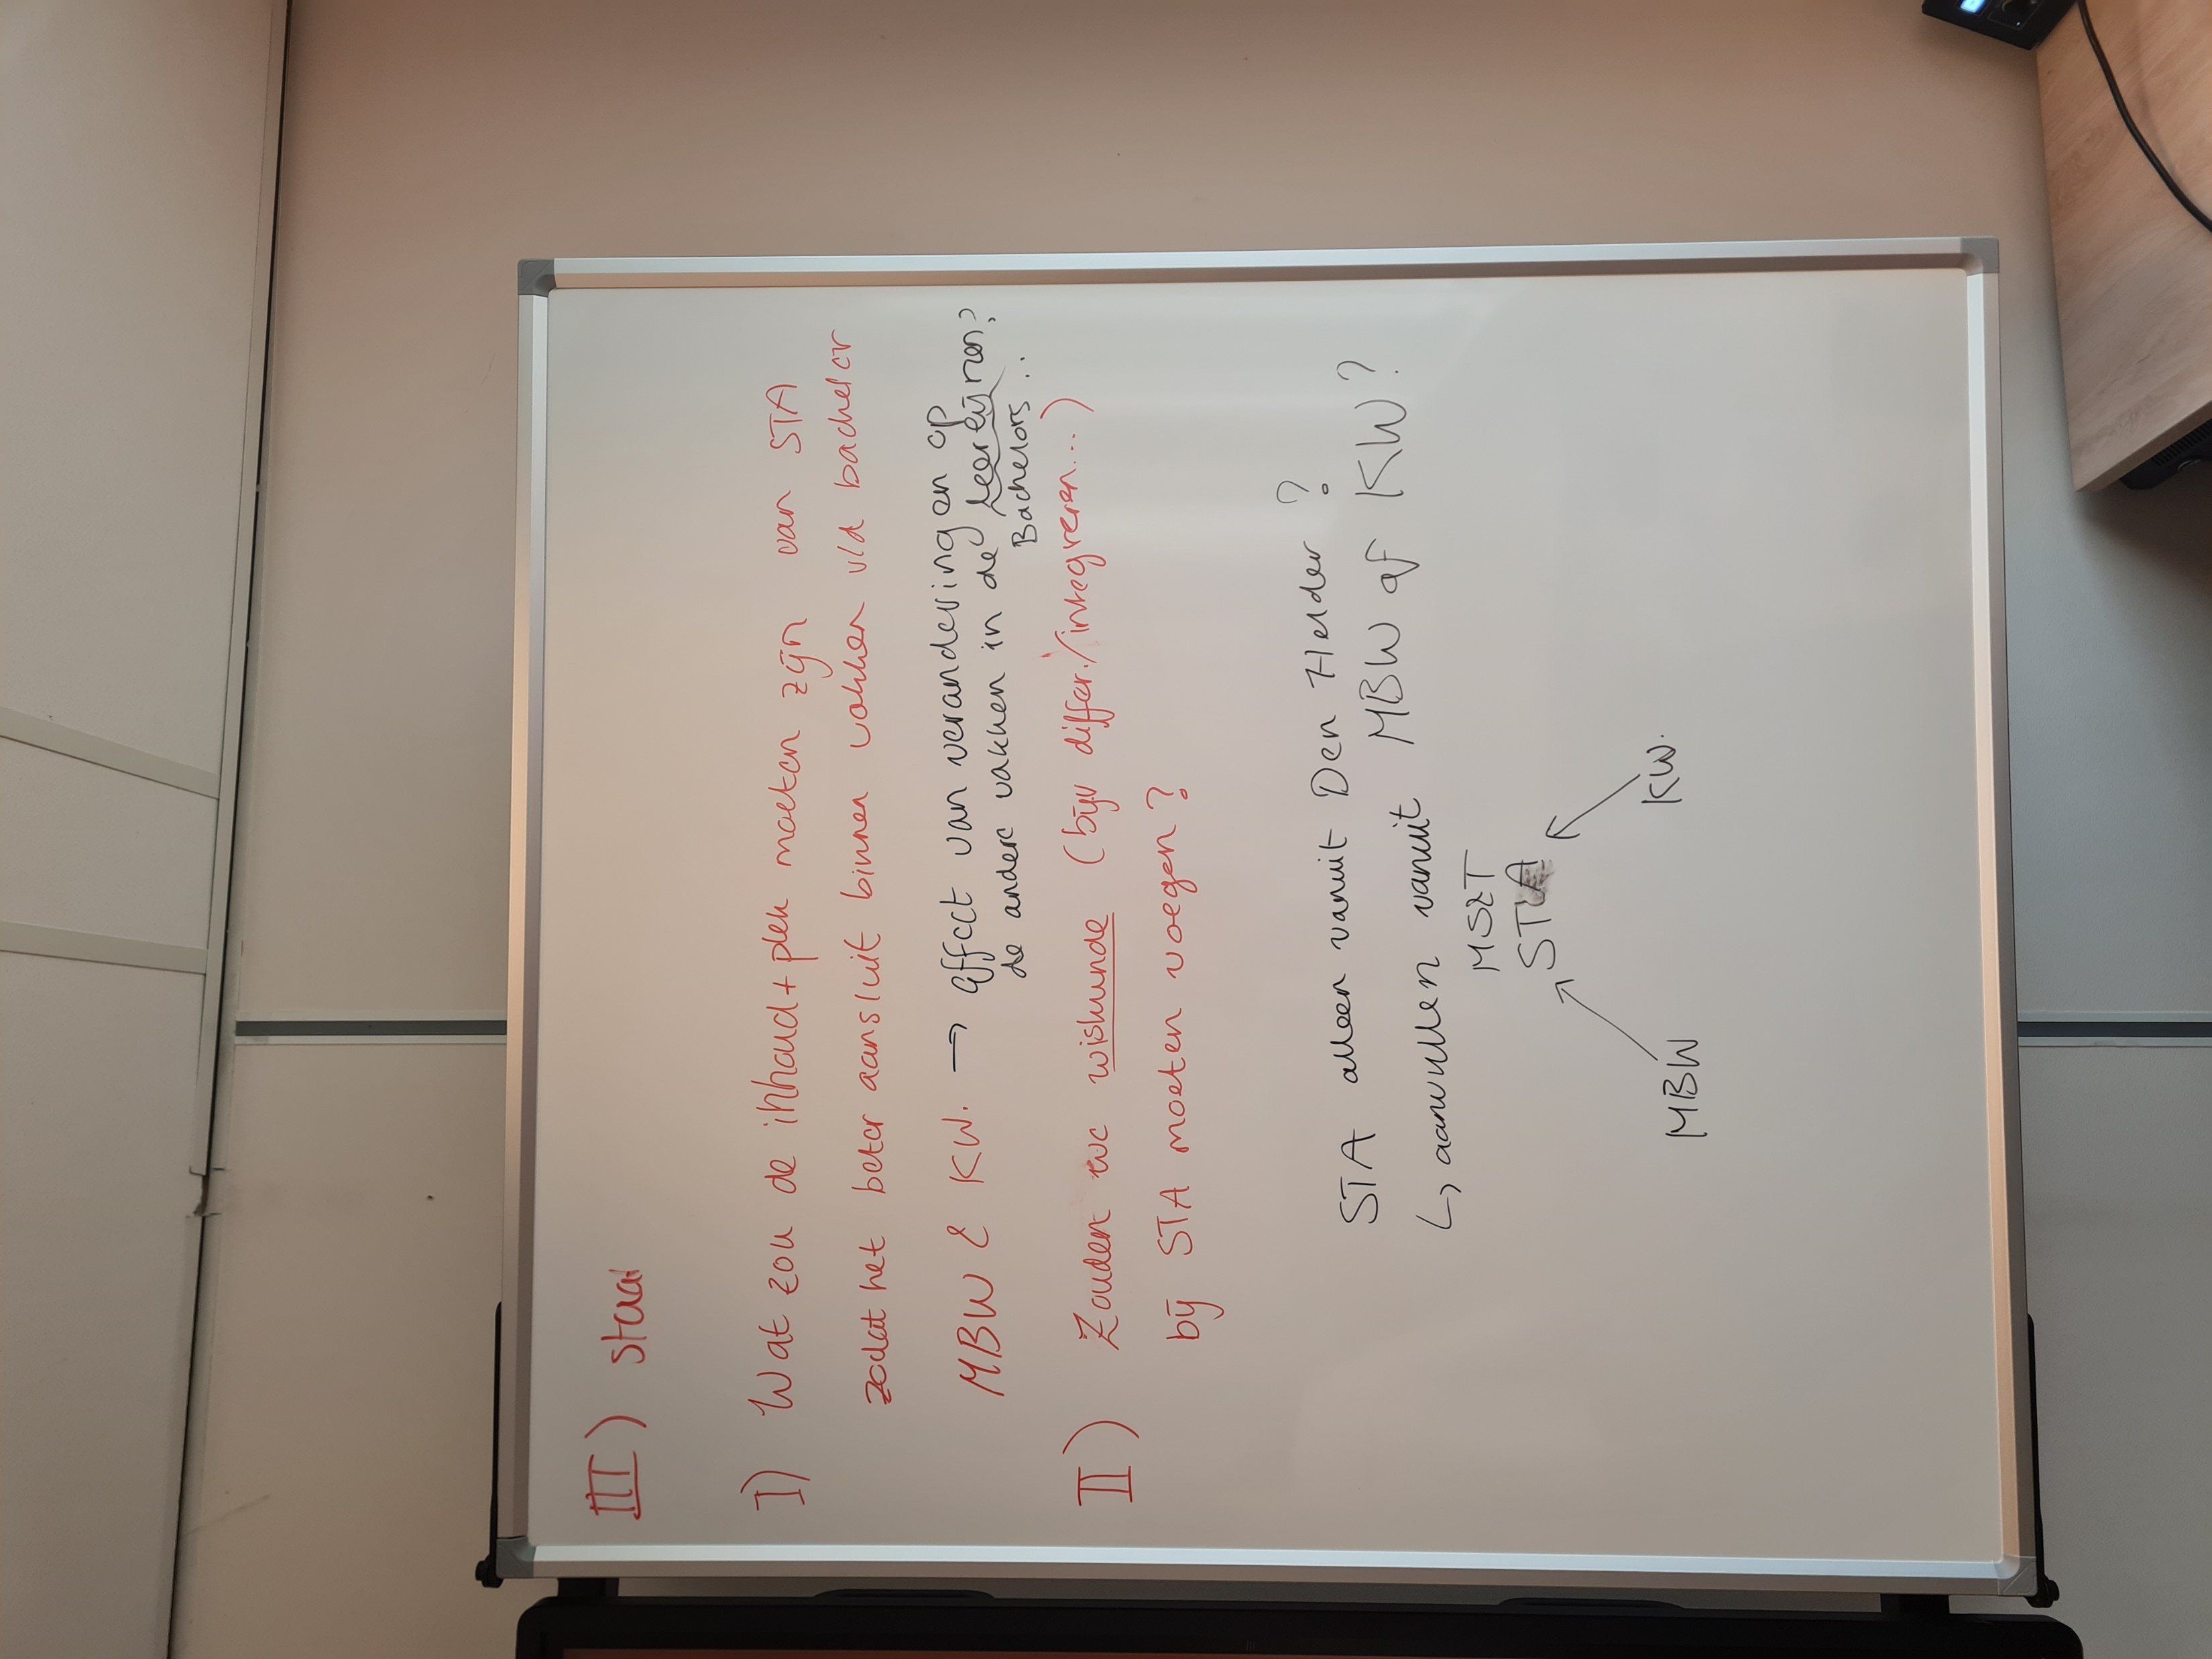 III) staa
I) Wat zou de inhoud + plek moeten zijn van STA
zodat het beter aansluit binnen vakken v/d bachelor
MBW & KW. → effect van veranderingen op
de andere vakken in de leerlijnen?
Bachelors...
II) Zouden we wiskunde (bijv differ./integreren...)
bij STA moeten voegen?
STA alleen vanuit Den Helder?
↳ aanvullen vanuit MBW of KW?
MS&T
STA
MBW
KW.